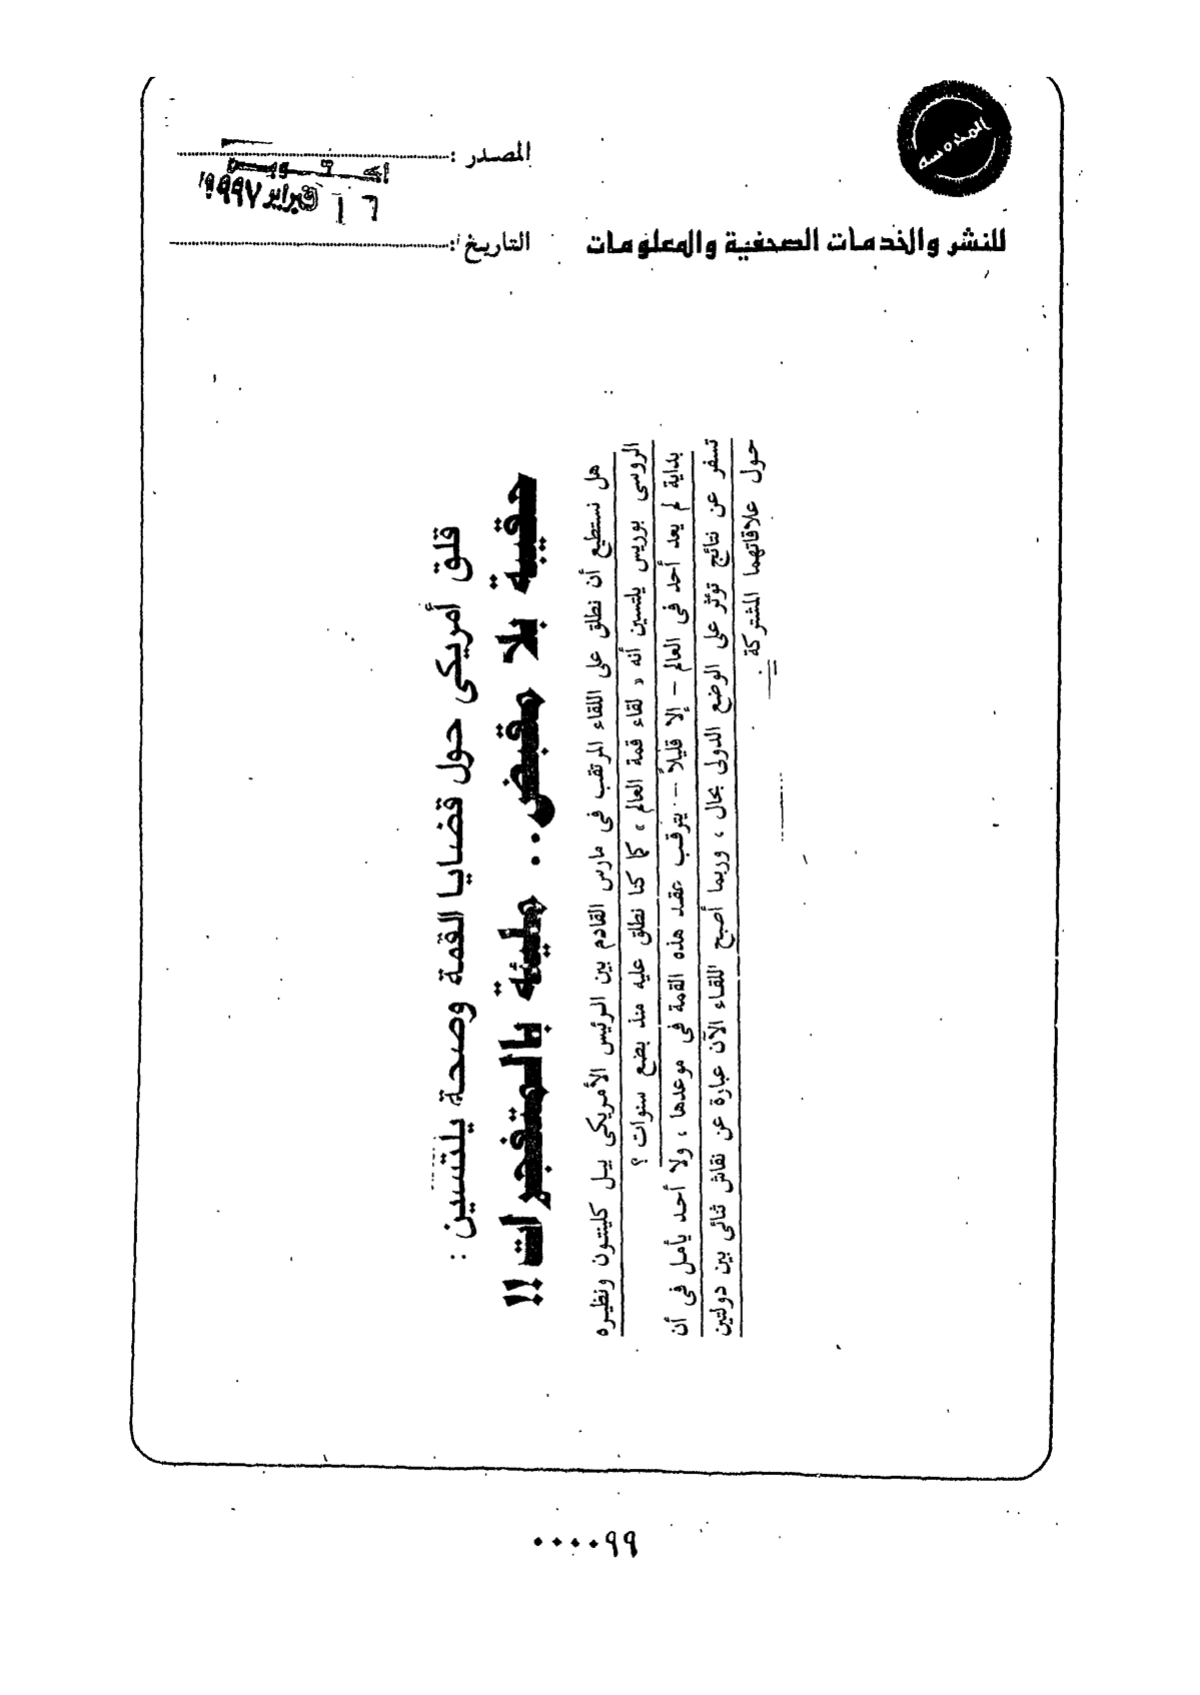 المصدر :
أكتوبر
١٦ فبراير ١٩٩٧
للنشر والخدمات الصحفية والمعلومات
التاريخ :
قلق أمريكى حول قضايا القمة وصحة يلتسين :
حقيبة بلا مقبض.. مليئة بالمتفجرات !!
هل نستطيع أن نطلق على اللقاء المرتقب فى مارس القادم بين الرئيس الأمريكى بيل كلينتون ونظيره
الروسى بوريس يلتسين أنه « لقاء قمة العالم » كما كنا نطلق عليه منذ بضع سنوات ؟
بداية لم يعد أحد فى العالم – إلا قليلاً – يترقب عقد هذه القمة فى موعدها ، ولا أحد يأمل فى أن
تسفر عن نتائج تؤثر على الوضع الدولى بحال ، وربما أصبح اللقاء الآن عبارة عن نقاش ثنائى بين دولتين
حول علاقاتهما المشتركة
٠٠٠٠٩٩